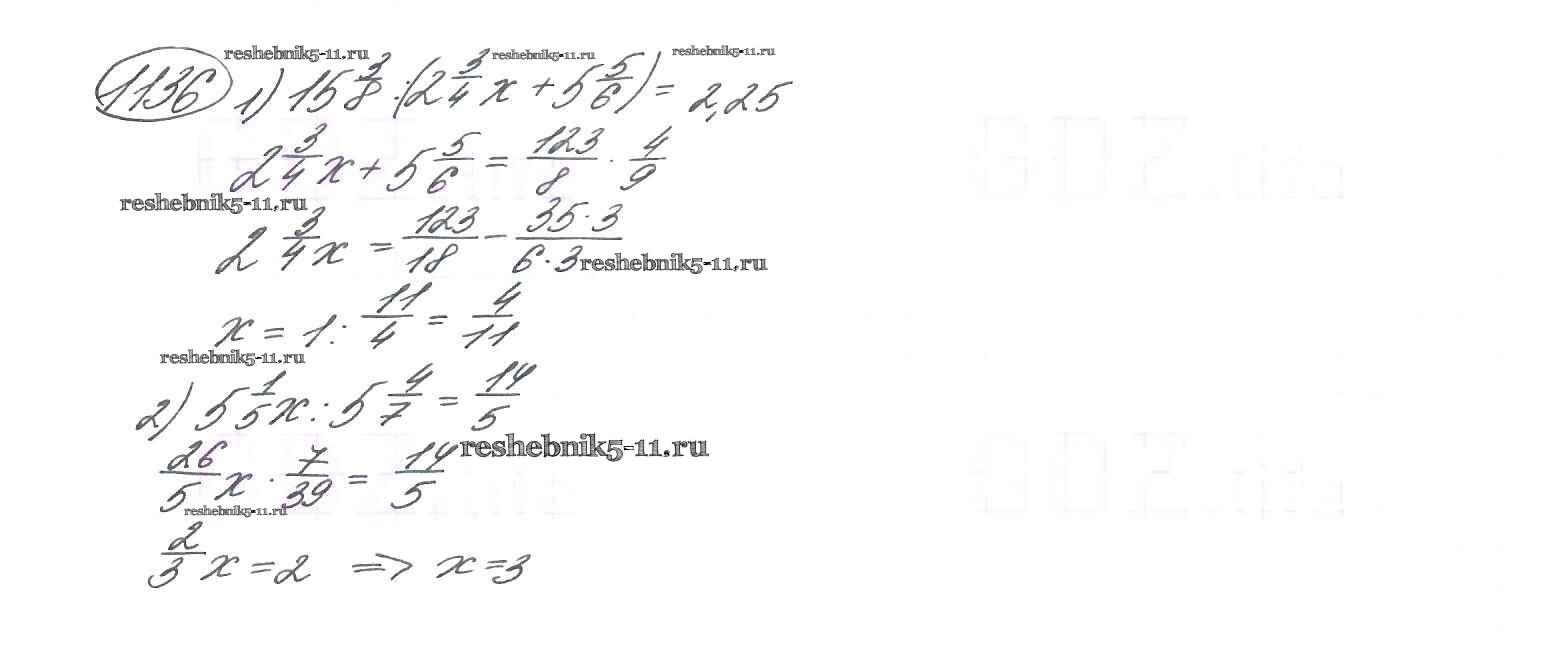 reshebnik5-11.ru reshebnik5-11.ru reshebnik5-11.ru
1136 1) 15 3/8 : (2 3/4 x + 5 5/6) = 2,25
2 3/4 x + 5 5/6 = 123/8 · 4/9
reshebnik5-11.ru
2 3/4 x = 123/18 - 35·3/6·3
reshebnik5-11.ru
x = 1 : 11/4 = 4/11
reshebnik5-11.ru
2) 5 1/5 x : 5 4/7 = 14/5
reshebnik5-11.ru
26/5 x · 7/39 = 14/5
reshebnik5-11.ru
2/3 x = 2 => x = 3